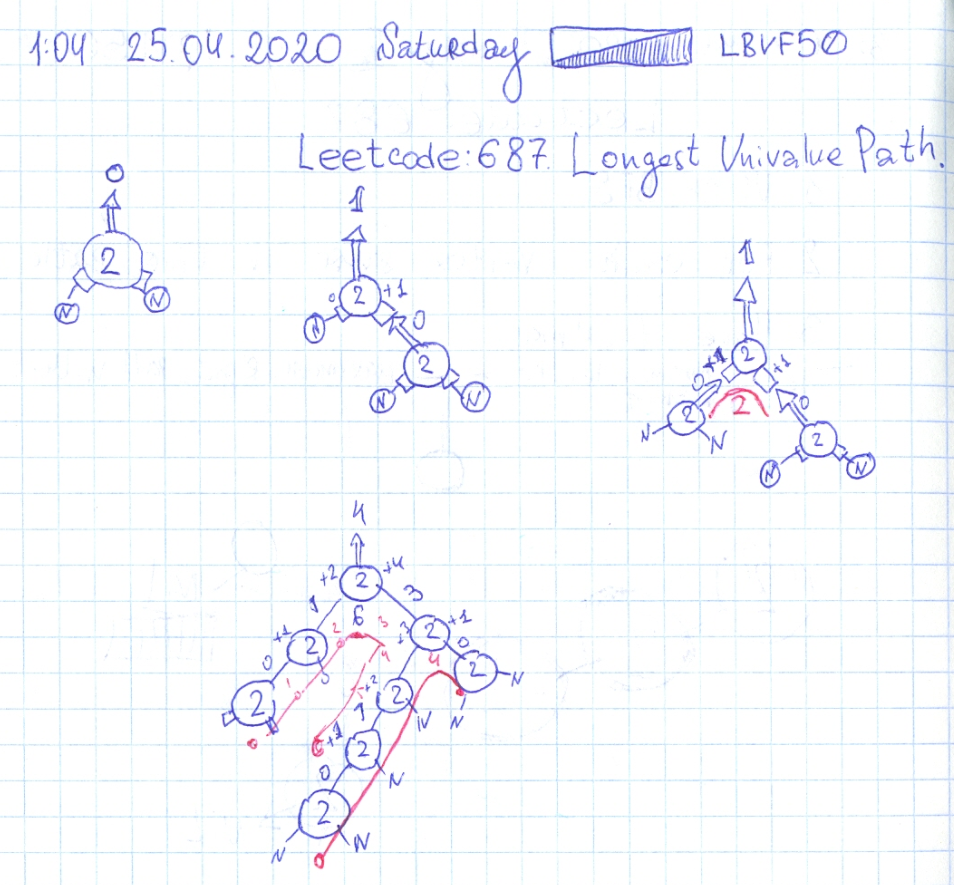 1:04 25.04.2020 Saturday LBVF50
Leetcode: 687. Longest Univalue Path.
0
2
N N
1
0 2 +1
N 0
2
N N
1
2
+1 +1
0 0
2 2 2
N N
N N
4
+2 2 +4
1 6 3
+1 2 2 3 +3 2 +1
0 0 4 4 0
2 1 +2 2 2 N
1 N N
+1 2
0 N
2
N N